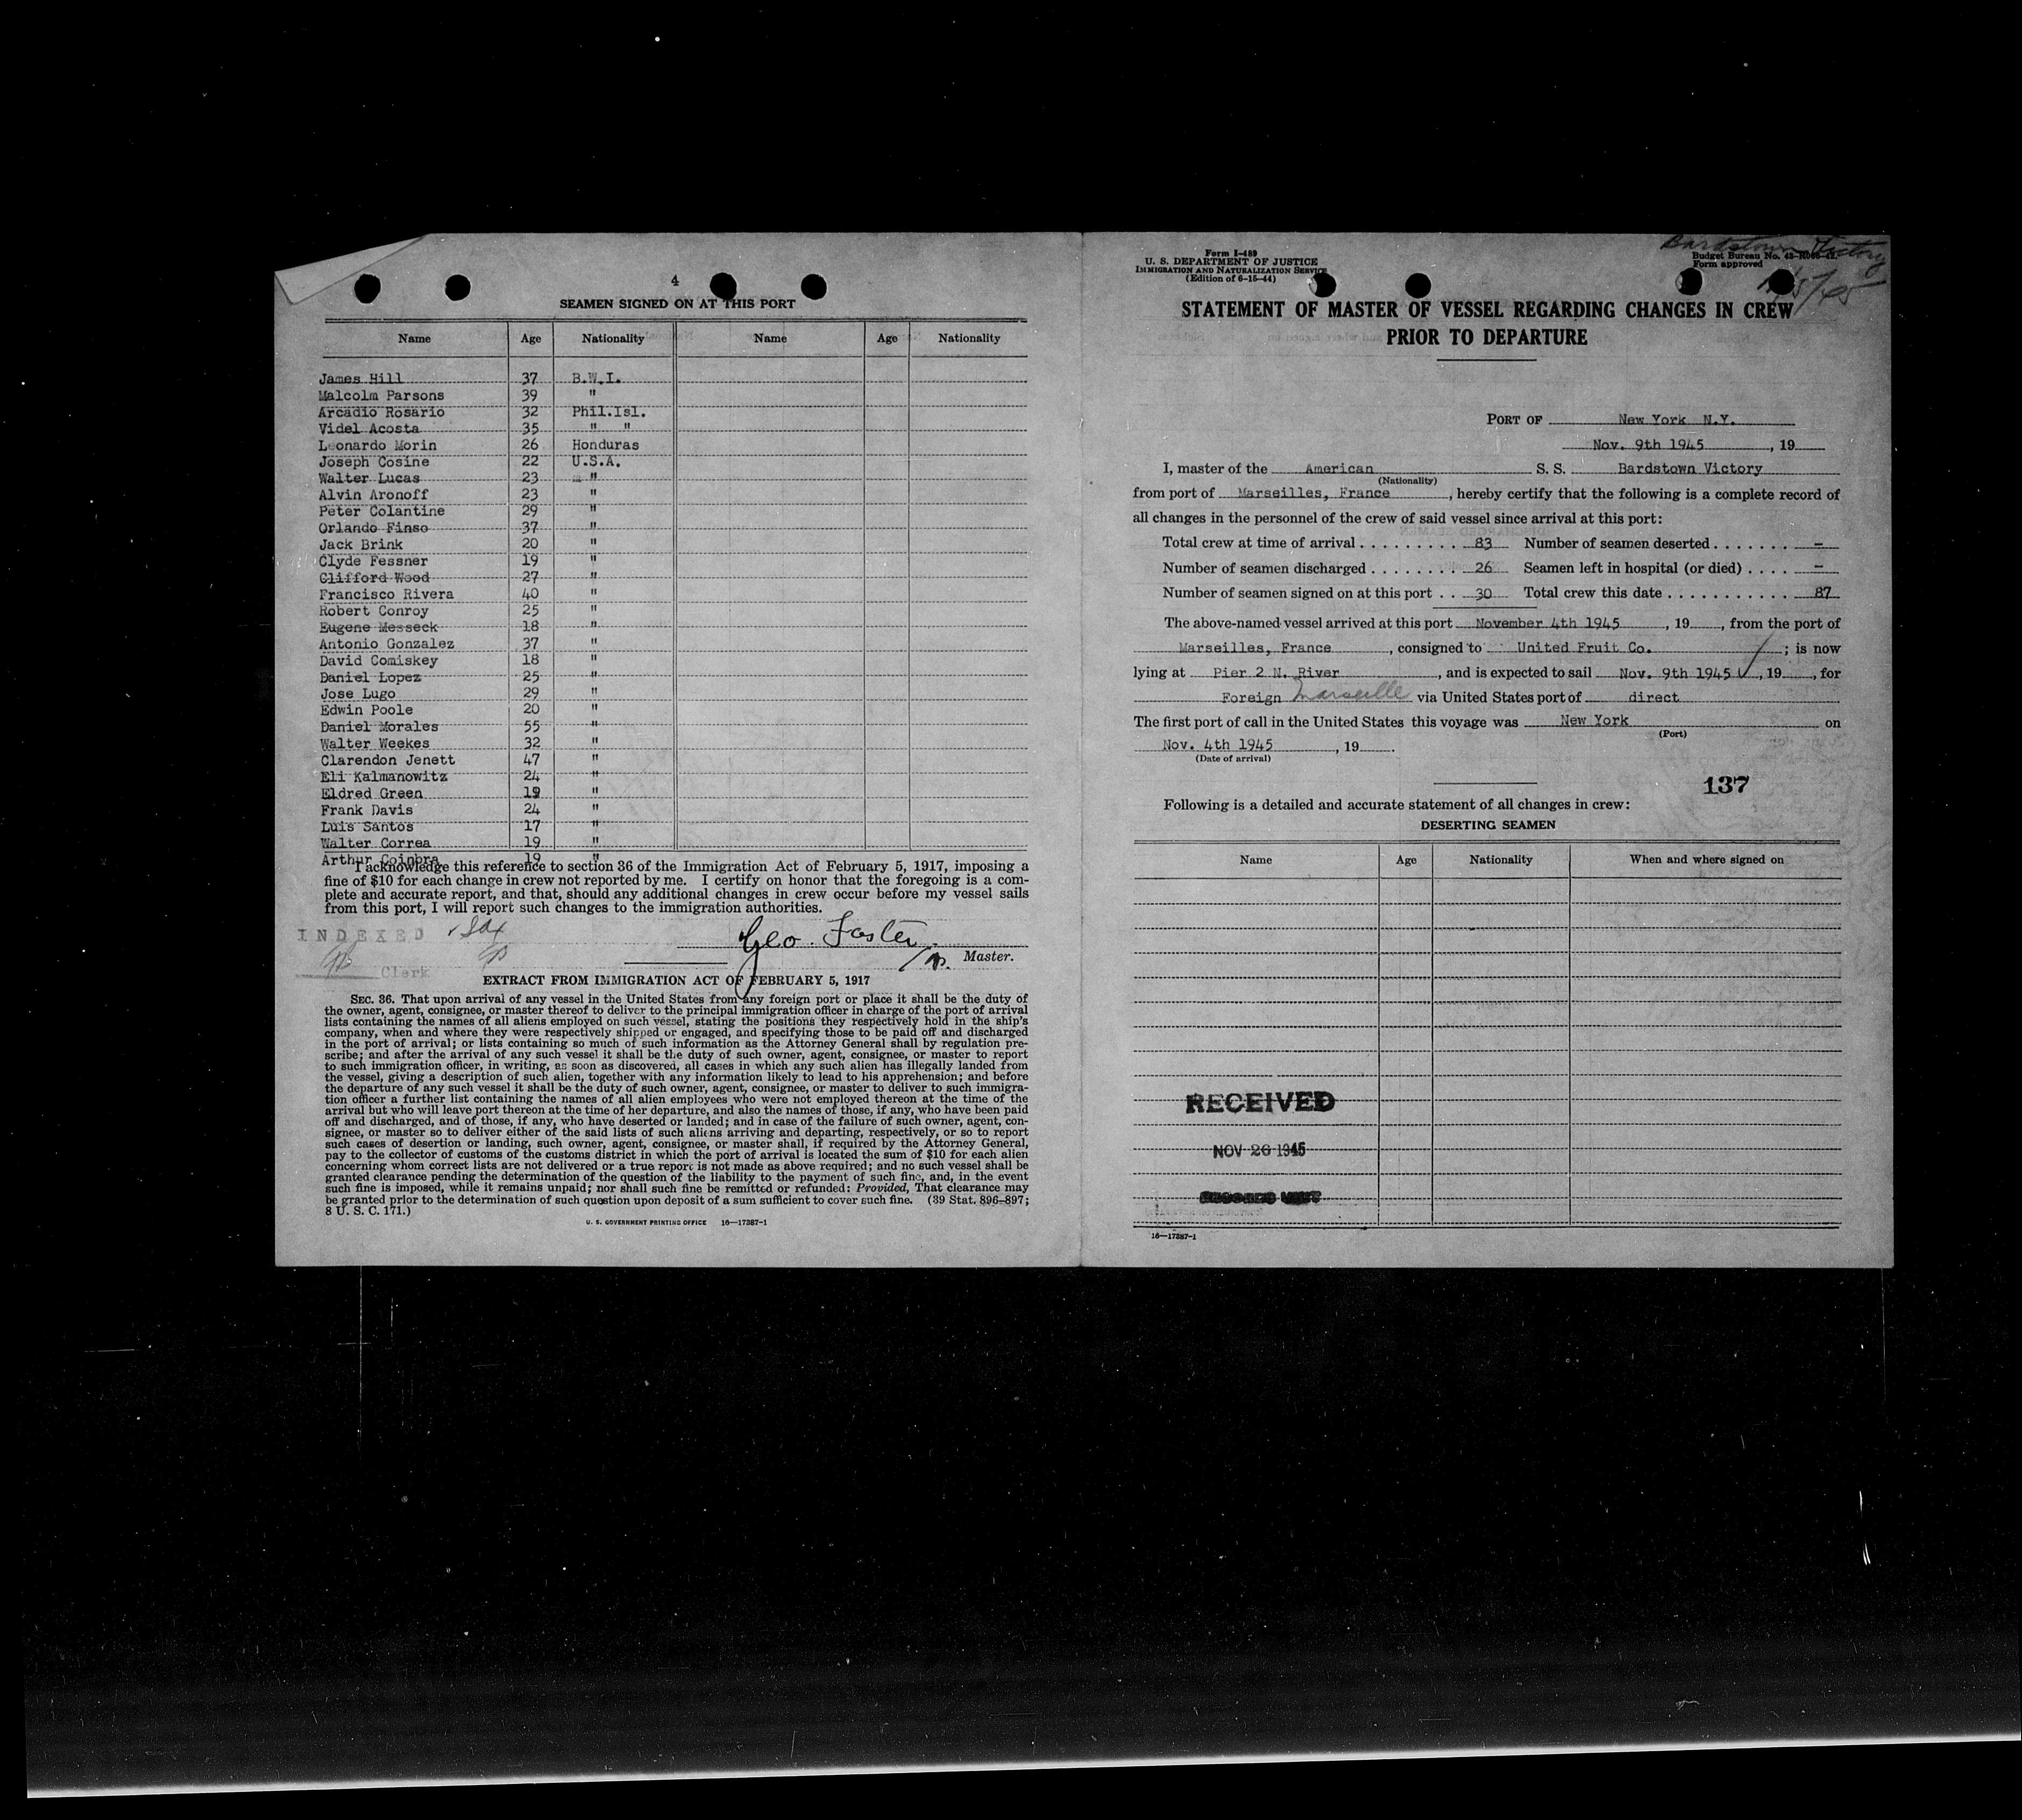 4
SEAMEN SIGNED ON AT THIS PORT
Name Age Nationality Name Age Nationality
James Hill 37 B.W.I.
Malcolm Parsons 39 "
Arcadio Rosario 32 Phil.Isl.
Videl Acosta 35 " "
Leonardo Morin 26 Honduras
Joseph Cosine 22 U.S.A.
Walter Lucas 23 "
Alvin Aronoff 23 "
Peter Colantine 29 "
Orlando Finso 37 "
Jack Brink 20 "
Clyde Fessner 19 "
Clifford Wood 27 "
Francisco Rivera 40 "
Robert Conroy 25 "
Eugene Messeck 18 "
Antonio Gonzalez 37 "
David Comiskey 18 "
Daniel Lopez 25 "
Jose Lugo 29 "
Edwin Poole 20 "
Daniel Morales 55 "
Walter Weekes 32 "
Clarendon Jenett 47 "
Eli Kalmanowitz 24 "
Eldred Green 19 "
Frank Davis 24 "
Luis Santos 17 "
Walter Correa 19 "
Arthur Coinbra 19 "
I acknowledge this reference to section 36 of the Immigration Act of February 5, 1917, imposing a
fine of $10 for each change in crew not reported by me. I certify on honor that the foregoing is a com-
plete and accurate report, and that, should any additional changes in crew occur before my vessel sails
from this port, I will report such changes to the immigration authorities.
INDEXED
Geo. Foster
Master.
Clerk
EXTRACT FROM IMMIGRATION ACT OF FEBRUARY 5, 1917
SEC. 36. That upon arrival of any vessel in the United States from any foreign port or place it shall be the duty of
the owner, agent, consignee, or master thereof to deliver to the principal immigration officer in charge of the port of arrival
lists containing the names of all aliens employed on such vessel, stating the positions they respectively hold in the ship's
company, when and where they were respectively shipped or engaged, and specifying those to be paid off and discharged
in the port of arrival; or lists containing so much of such information as the Attorney General shall by regulation pre-
scribe; and after the arrival of any such vessel it shall be the duty of such owner, agent, consignee, or master to report
to such immigration officer, in writing, as soon as discovered, all cases in which any such alien has illegally landed from
the vessel, giving a description of such alien, together with any information likely to lead to his apprehension; and before
the departure of any such vessel it shall be the duty of such owner, agent, consignee, or master to deliver to such immigra-
tion officer a further list containing the names of all alien employees who were not employed thereon at the time of the
arrival but who will leave port thereon at the time of her departure, and also the names of those, if any, who have been paid
off and discharged, and of those, if any, who have deserted or landed; and in case of the failure of such owner, agent, con-
signee, or master so to deliver either of the said lists of such aliens arriving and departing, respectively, or so to report
such cases of desertion or landing, such owner, agent, consignee, or master shall, if required by the Attorney General,
pay to the collector of customs of the customs district in which the port of arrival is located the sum of $10 for each alien
concerning whom correct lists are not delivered or a true report is not made as above required; and no such vessel shall be
granted clearance pending the determination of the question of the liability to the payment of such fine, and, in the event
such fine is imposed, while it remains unpaid; nor shall such fine be remitted or refunded: Provided, That clearance may
be granted prior to the determination of such question upon deposit of a sum sufficient to cover such fine. (39 Stat. 896–897;
8 U. S. C. 171.)
U. S. GOVERNMENT PRINTING OFFICE 16—17387-1
Bardstown Victory
Form I-489
U. S. DEPARTMENT OF JUSTICE
IMMIGRATION AND NATURALIZATION SERVICE
(Edition of 6-15-44)
Budget Bureau No.
Form approved
STATEMENT OF MASTER OF VESSEL REGARDING CHANGES IN CREW
PRIOR TO DEPARTURE
PORT OF New York N.Y.
Nov. 9th 1945, 19
I, master of the American S. S. Bardstown Victory
(Nationality)
from port of Marseilles, France, hereby certify that the following is a complete record of
all changes in the personnel of the crew of said vessel since arrival at this port:
Total crew at time of arrival . . . . . . . . . 83 Number of seamen deserted . . . . . . . –
Number of seamen discharged . . . . . . . . 26 Seamen left in hospital (or died) . . . . –
Number of seamen signed on at this port . . 30 Total crew this date . . . . . . . . . . . 87
The above-named vessel arrived at this port November 4th 1945, 19, from the port of
Marseilles, France, consigned to United Fruit Co. ; is now
lying at Pier 2 N. River, and is expected to sail Nov. 9th 1945, 19, for
Foreign Marseille via United States port of direct
The first port of call in the United States this voyage was New York on
(Port)
Nov. 4th 1945, 19.
(Date of arrival)
137
Following is a detailed and accurate statement of all changes in crew:
DESERTING SEAMEN
Name Age Nationality When and where signed on
RECEIVED
NOV 26 1945
16—17387-1